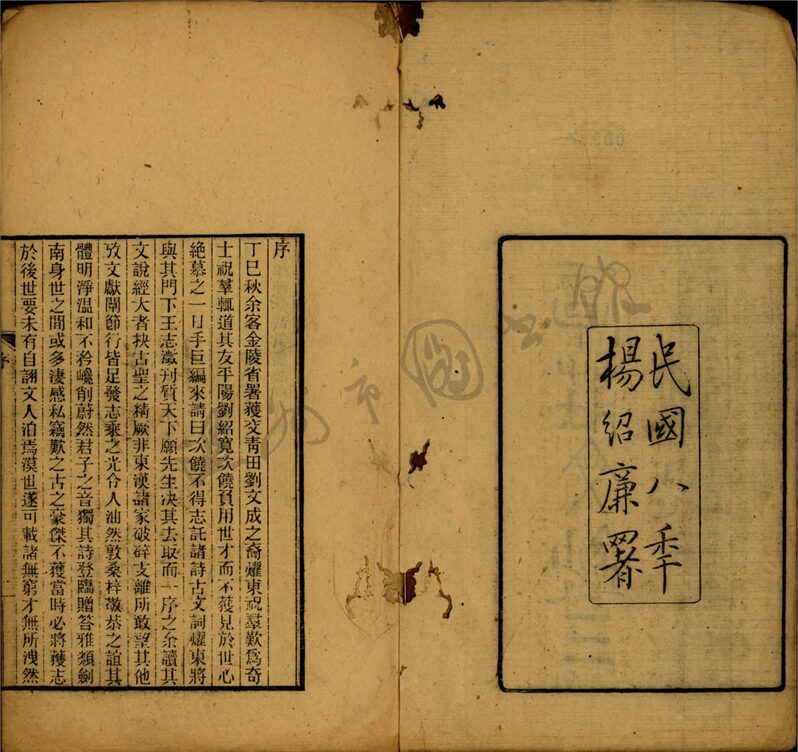 民國八年
楊紹廉署
序
丁巳秋余客金陵省署獲交青田劉文成之裔燿東祝羣歎爲奇
士祝羣輒道其友平陽劉紹寬次饒負用世才而不獲見於世心
絶慕之一日手巨編來請曰次饒不得志託諸詩古文詞燿東將
與其門下王志澂刊質天下願先生決其去取而一序之余讀其
文說經大者抉古聖之精厥非東漢諸家破碎支離所敢望其他
攷文獻闡節行皆足發志乘之光令人油然敦桑梓敬恭之誼其
體明淨溫和不矜巉削蔚然君子之音獨其詩登臨贈答雅類劍
南身世之間或多淒感私竊歎之古之豪傑不獲當時必將獲志
於後世要未有自詡文人泊焉漠世遂可載諸無窮才無所洩然
序
一